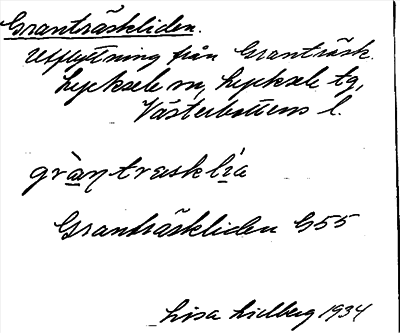 Granträskliden.
Utflyttning från Granträsk.
Lycksele sn, Lycksele tg,
Västerbottens l.
gràntrasklìa
Granträskliden G55
Lisa Lidberg 1934